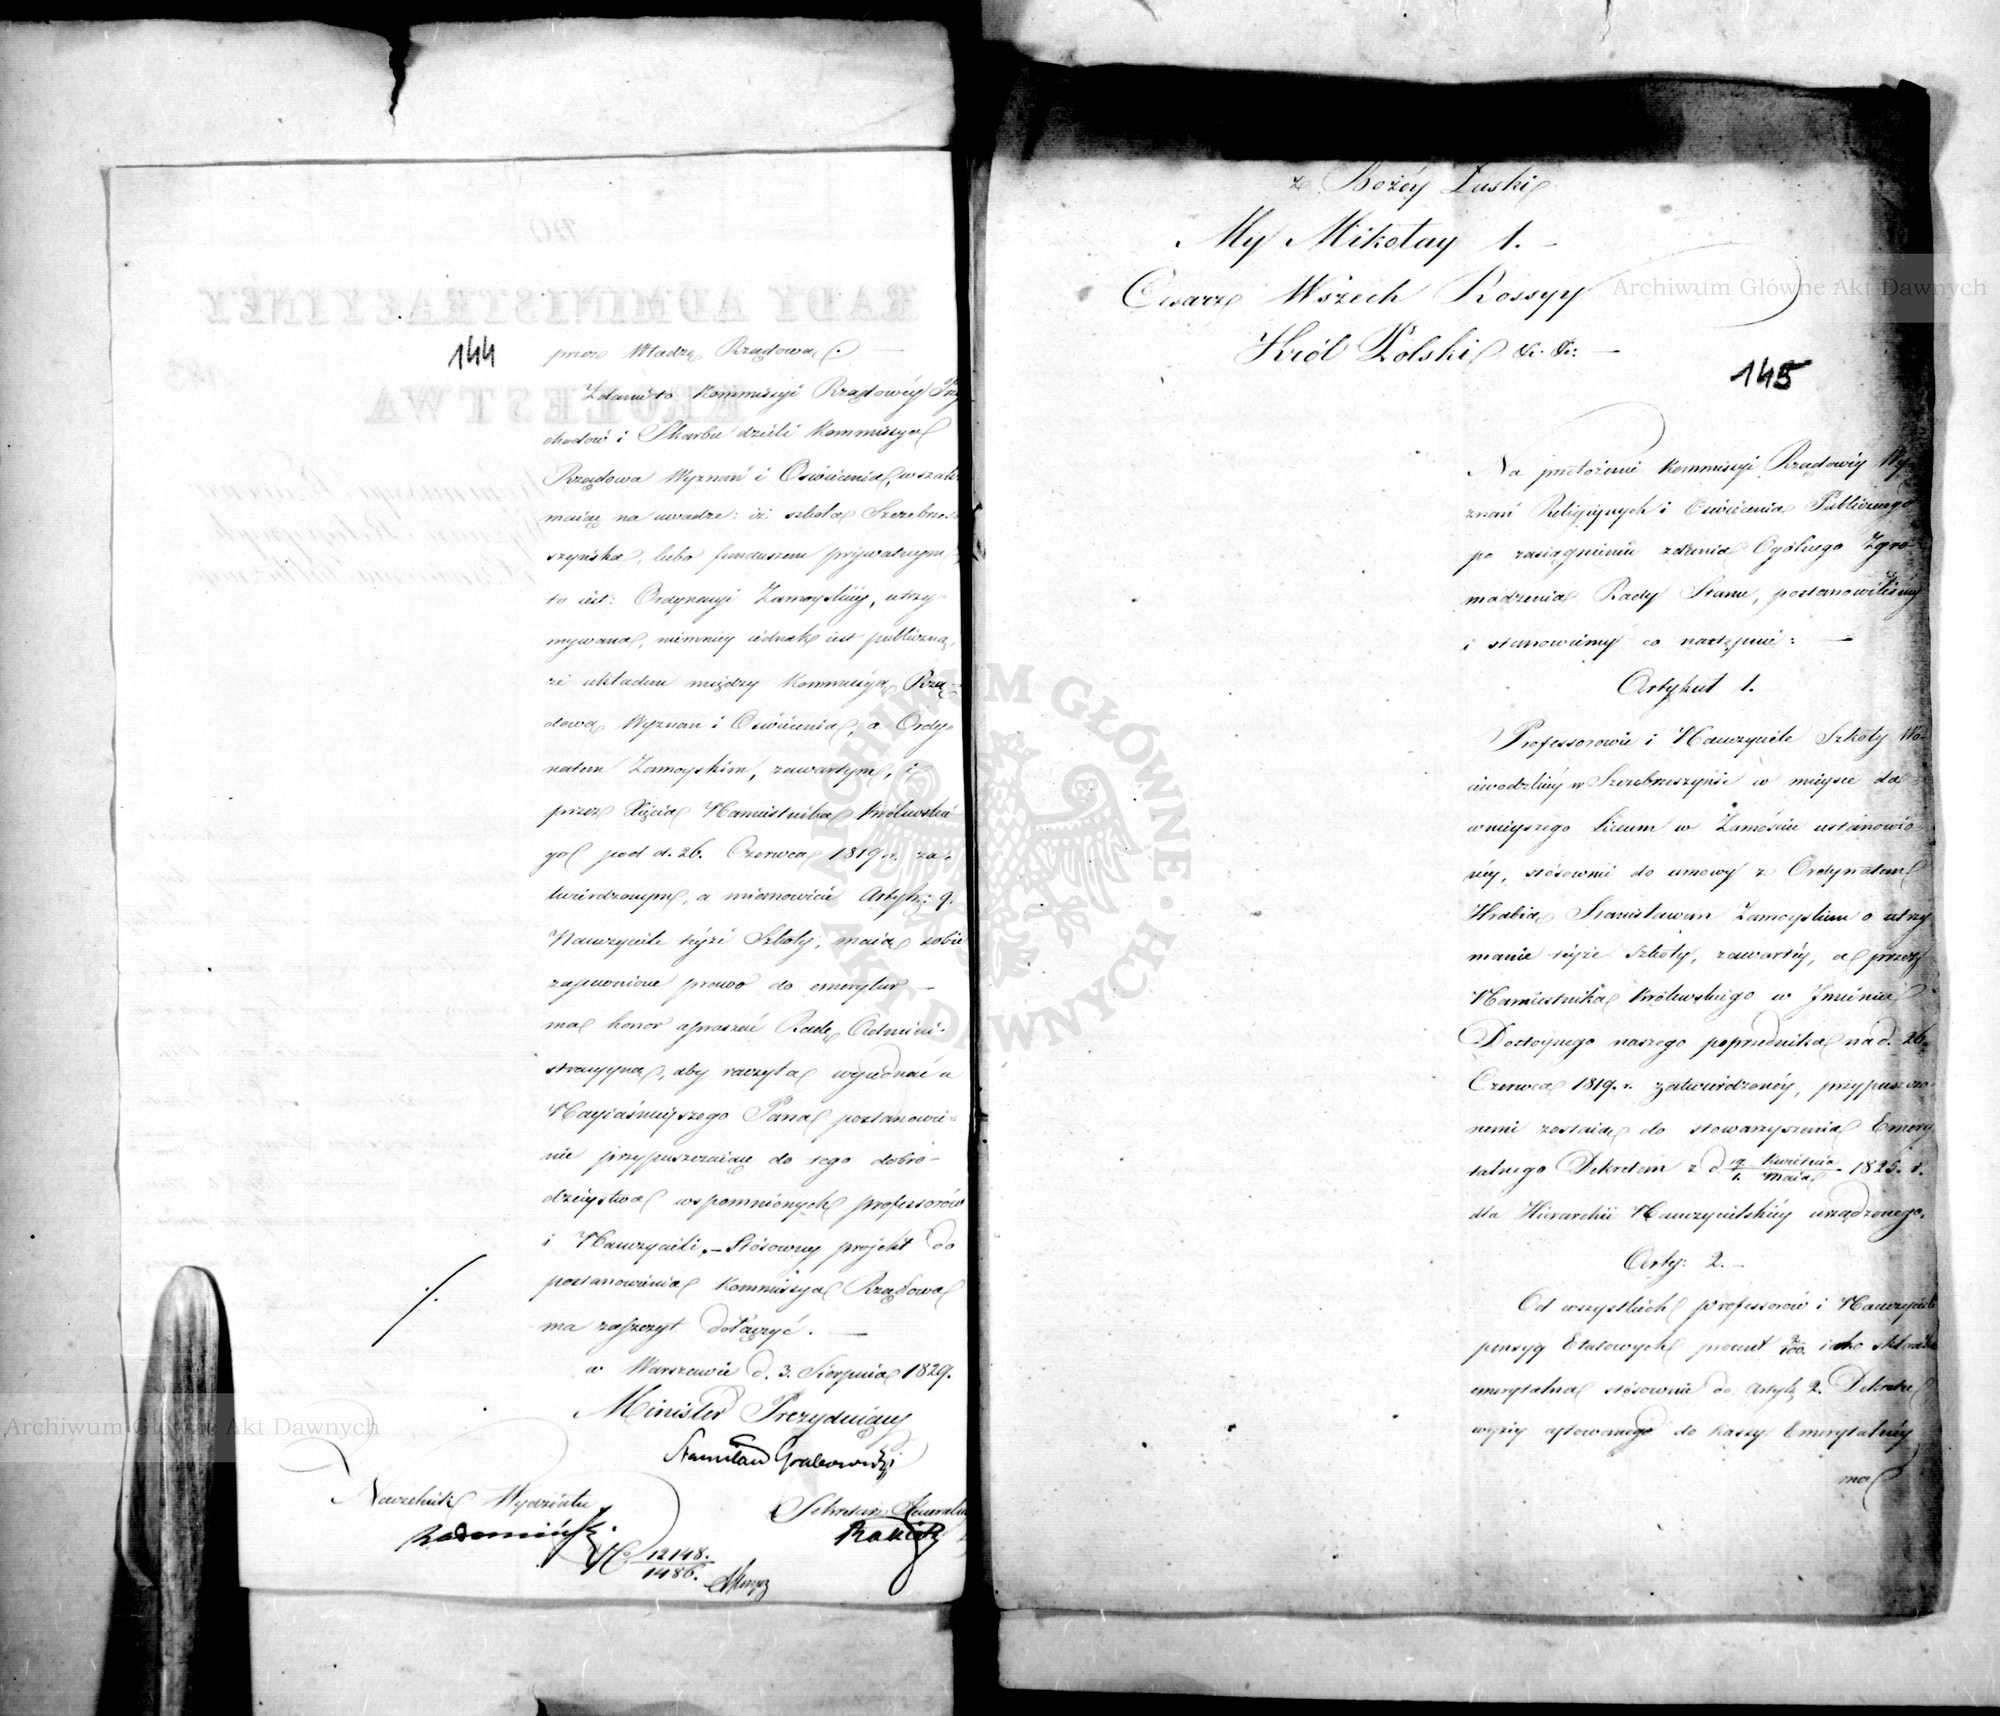 144
przez Władzę Rządową. —
Zdanie to Kommissyi Rządowéy Przy
chodów i Skarbu dzieli Kommissya
Rządowa Wyznań i Oświecenia, wszakże
maiąc na uwadze: iż szkoła Szczebrze-
szyńska, lubo funduszem prywatnym,
to iest: Ordynacyi Zamoyskiéy, utrzy-
mywana, niemniéy iednak iest publiczną,
że układem między Kommissyą Rzą-
dową Wyznań i Oświecenia, a Ordy-
natem Zamoyskim, zawartym, i
przez Xięcia Namiestnika Królewskie-
go pod d. 26. Czerwca 1819. r. za-
twierdzonym, a mianowicie Artyk: 9.
Nauczyciele téyże Szkoły, maią sobie
zapewnione prawo do emerytur —
ma honor upraszać Radę Admini-
stracyyną, aby raczyła wyiednać u
Nayiaśnieyszego Pana postanowie-
nie przypuszczaiące do tego dobro-
dzieystwa wspomnionych professorów
i Nauczycieli. — Stósowny projekt do
postanowienia Kommissya Rządowa
ma zaszczyt dołączyć. —
w Warszawie d. 3. Sierpnia 1829.
Minister Prezyduiący
Stanisław Grabowski
Naczelnik Wydziału
Radomiński
Sekretarz Jeneralny
No 12148.
1486.
z Bożéy Łaski
My Mikołay 1. —
Cesarz Wszech Rossyy
Król Polski &. &: —
145
Na przełożenie Kommissyi Rządowéy Wy-
znań Religiynych i Oświecenia Publicznego
po zasiągnieniu zdania Ogólnego Zgro-
madzenia Rady Stanu, postanowiliśmy
i stanowiemy co następuie: —
Artykuł 1.
Professorowie i Nauczyciele Szkoły Wo-
iewodzkiéy w Szczebrzeszynie w mieysce da
wnieyszego Liceum w Zamościu ustanowio-
néy, stósownie do umowy z Ordynatem
Hrabią Stanisławem Zamoyskim o utrzy
manie téyże Szkoły, zawartéy, a przez
Namiestnika Królewskiego w Jmieniu
Dostoynego naszego poprzednika na d. 26.
Czerwca 1819. r. zatwierdzonéy, przypuszcze-
nemi zostaią do stowarzyszenia Emery
talnego Dekretem z d. 19 Kwietnia / 1. Maia 1823. r.
dla Hierarchii Nauczycielskiéy urządzonego.
Arty: 2. —
Od wszystkich professorów i Nauczycieli
pensyy Etatowych procent 2/100. iako składka
emerytalna stósownie do Artyk 2. Dekretu
wyżéy cytowanego do Kassy Emerytalnéy
ma
Archiwum Główne Akt Dawnych
Archiwum Główne Akt Dawnych
ARCHIWUM GŁÓWNE · AKT DAWNYCH ·